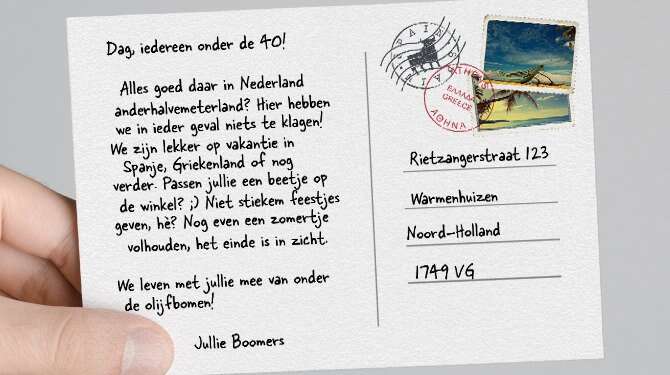 Dag, iedereen onder de 40!
Alles goed daar in Nederland
anderhalvemeterland? Hier hebben
we in ieder geval niets te klagen!
We zijn lekker op vakantie in
Spanje, Griekenland of nog
verder. Passen jullie een beetje op
de winkel? ;) Niet stiekem feestjes
geven, hè? Nog even een zomertje
volhouden, het einde is in zicht.
We leven met jullie mee van onder
de olijfbomen!
Jullie Boomers
SPAIN
GREECE
ΑΘΗΝΑ
Rietzangerstraat 123
Warmenhuizen
Noord-Holland
1749 VG